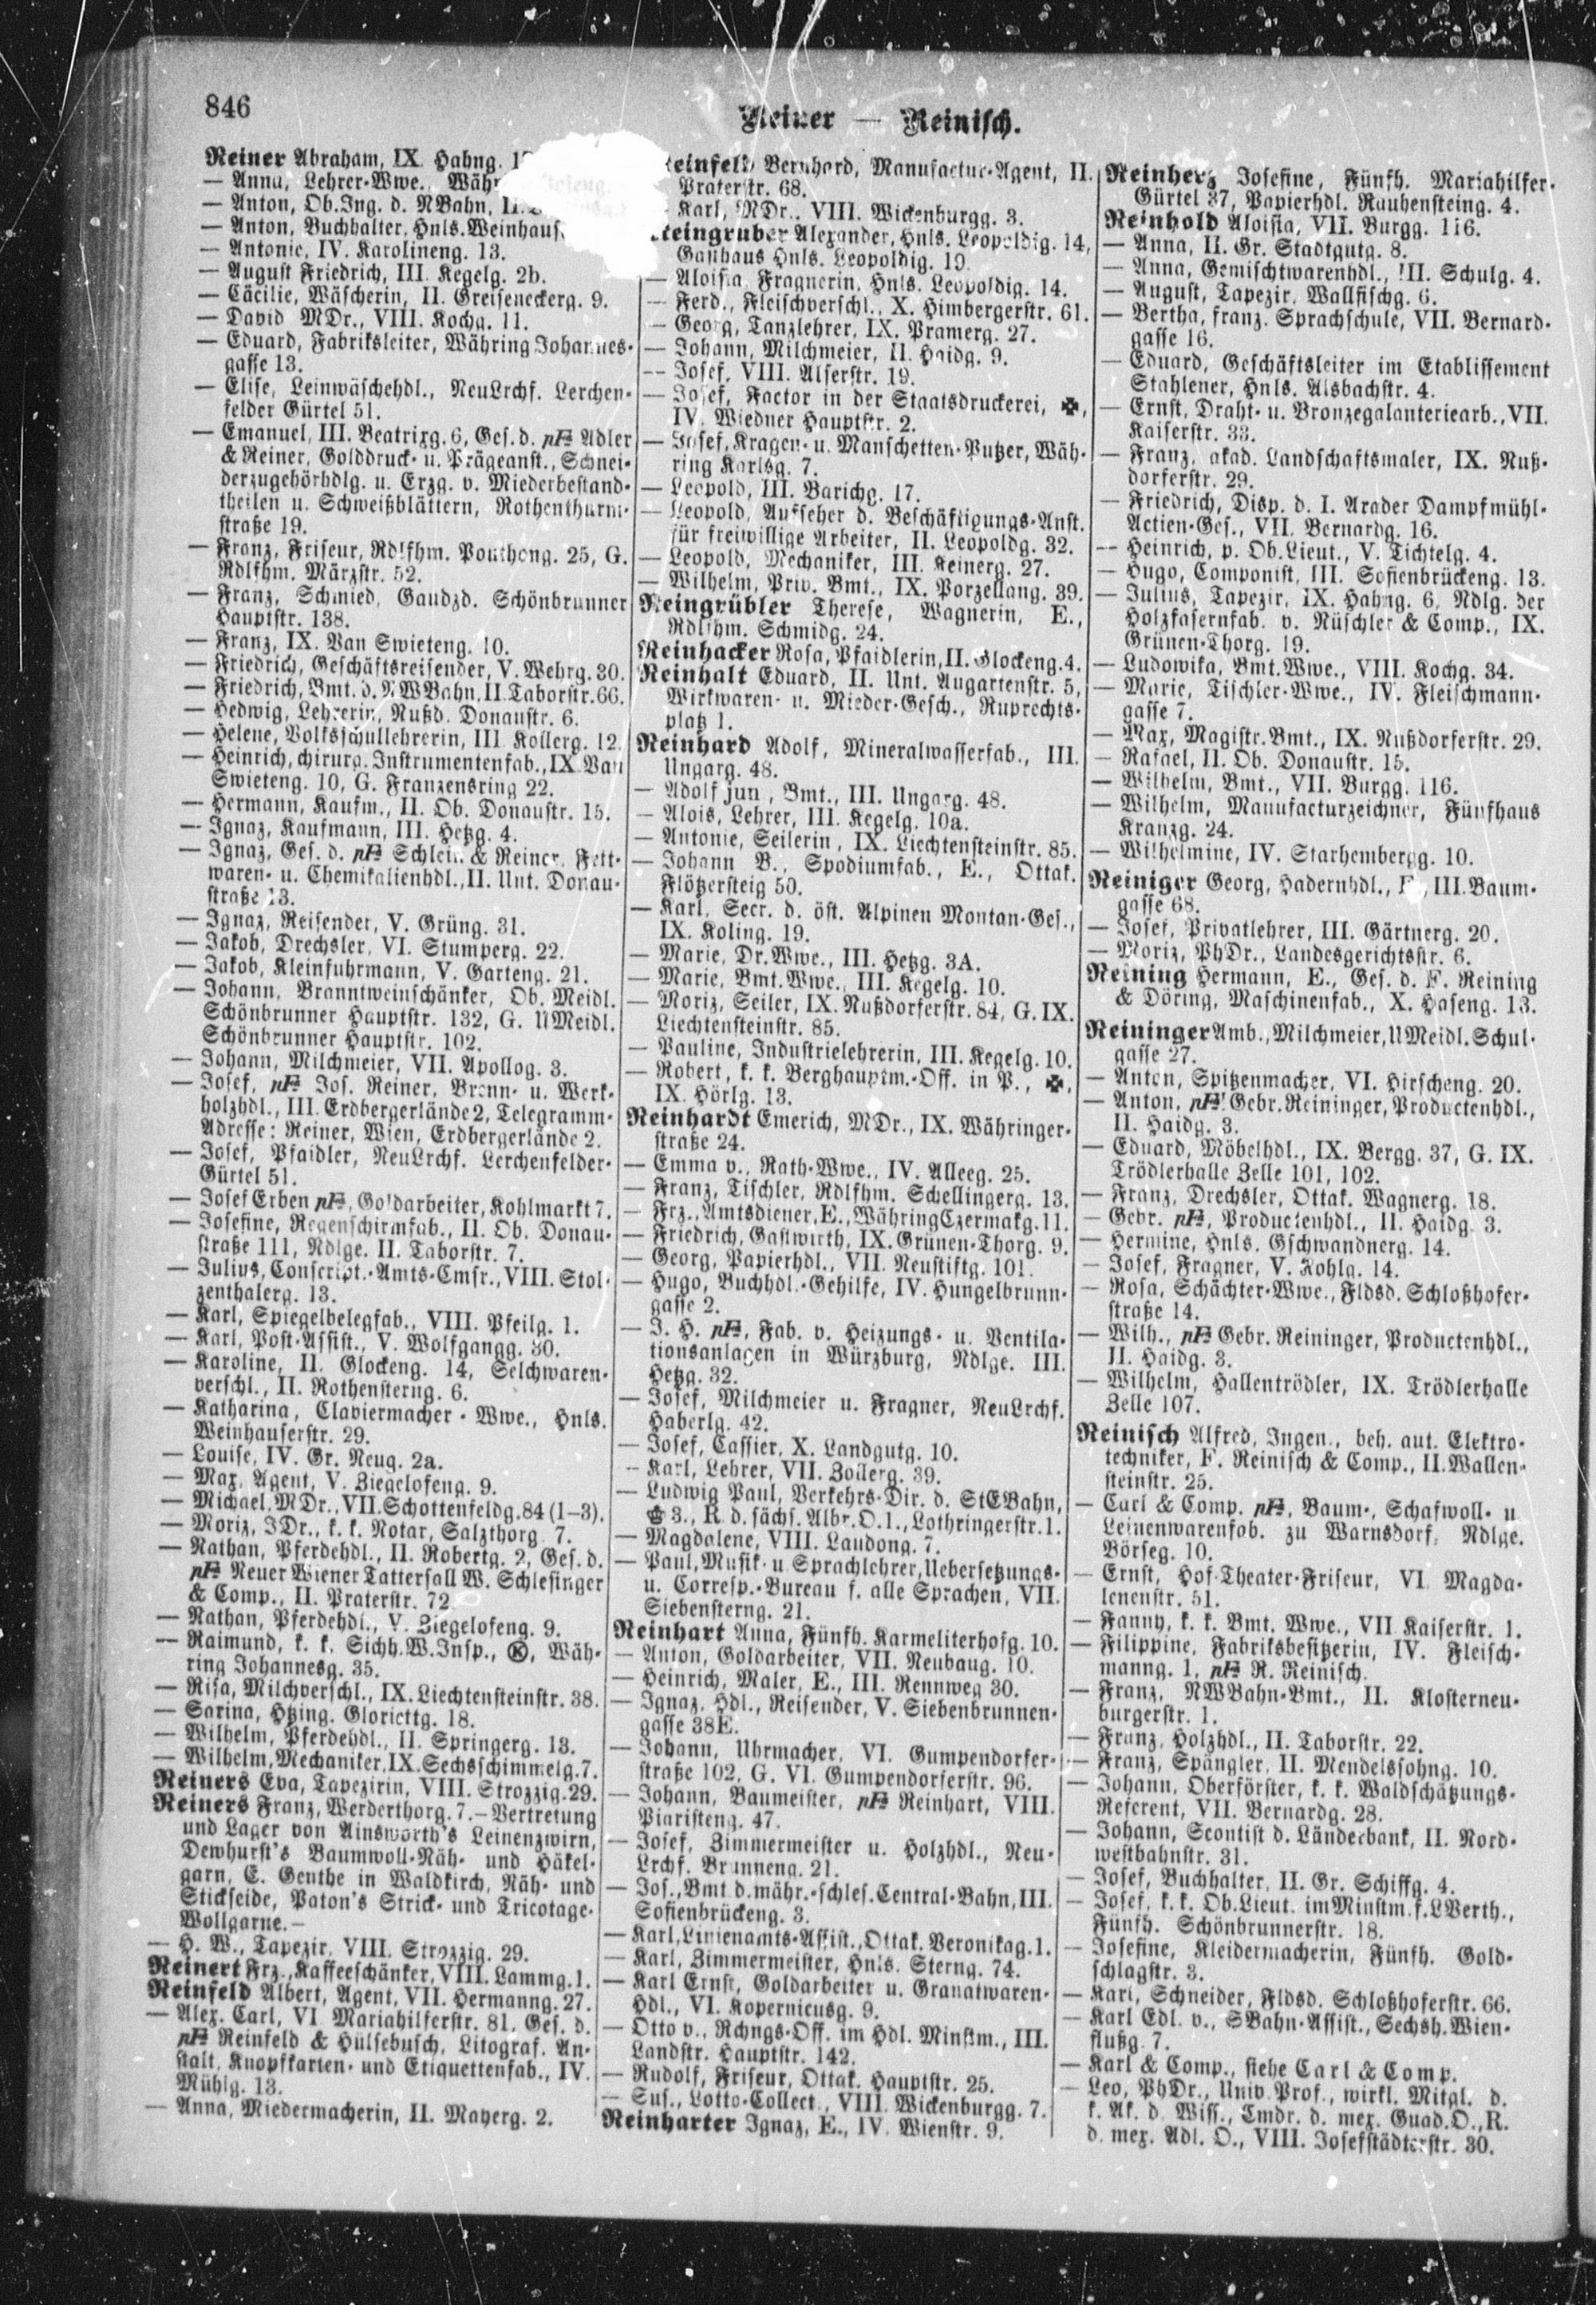 846
Reiner — Reinisch.
Reiner Abraham, IX. Hahng.
— Anna, Lehrer-Wwe.,
— Anton, Ob.Ing. d. NBahn, II.
— Anton, Buchhalter, Hnls.
— Antonie, IV. Karolineng. 13.
— August Friedrich, III. Kegelg. 2b.
— Cäcilie, Wäscherin, II. Greiseneckerg. 9.
— David MDr., VIII. Kochg. 11.
— Eduard, Fabriksleiter, Währing Johannes-
gasse 13.
— Elise, Leinwäschehdl., NeuLrchf. Lerchen-
felder Gürtel 51.
— Emanuel, III. Beatrixg. 6, Ges. d. pF Adler
& Reiner, Golddruck- u. Prägeanst., Schnei-
derzugehörhdlg. u. Erzg. v. Miederbestand-
theilen u. Schweißblättern, Rothenthurm-
straße 19.
— Franz, Friseur, Rdlfhm. Pouthong. 25, G.
Rdlfhm. Märzstr. 52.
— Franz, Schmied, Gaudzd. Schönbrunner
Hauptstr. 138.
— Franz, IX. Van Swieteng. 10.
— Friedrich, Geschäftsreisender, V. Wehrg. 30.
— Friedrich, Bmt. d. NWBahn, II. Taborstr. 66.
— Hedwig, Lehrerin, Nußd. Donaustr. 6.
— Helene, Volksschullehrerin, III. Kollerg. 12.
— Heinrich, chirurg. Instrumentenfab., IX. Van
Swieteng. 10, G. Franzensring 22.
— Hermann, Kaufm., II. Ob. Donaustr. 15.
— Ignaz, Kaufmann, III. Hetzg. 4.
— Ignaz, Ges. d. pF Schlein & Reiner, Fett-
waren- u. Chemikalienhdl., II. Unt. Donau-
straße 13.
— Ignaz, Reisender, V. Grüng. 31.
— Jakob, Drechsler, VI. Stumperg. 22.
— Jakob, Kleinfuhrmann, V. Garteng. 21.
— Johann, Branntweinschänker, Ob. Meidl.
Schönbrunner Hauptstr. 132, G. UMeidl.
Schönbrunner Hauptstr. 102.
— Johann, Milchmeier, VII. Apollog. 3.
— Josef, pF Jos. Reiner, Brenn- u. Werk-
holzhdl., III. Erdbergerlände 2, Telegramm-
Adresse: Reiner, Wien, Erdbergerlände 2.
— Josef, Pfaidler, NeuLrchf. Lerchenfelder-
Gürtel 51.
— Josef Erben pF, Goldarbeiter, Kohlmarkt 7.
— Josefine, Regenschirmfab., II. Ob. Donau-
straße 111, Ndlge. II. Taborstr. 7.
— Julius, Conscript.-Amts-Cmsr., VIII. Stol-
zenthalerg. 13.
— Karl, Spiegelbelegfab., VIII. Pfeilg. 1.
— Karl, Post-Assist., V. Wolfgangg. 30.
— Karoline, II. Glockeng. 14, Selchwaren-
verschl., II. Rothensterng. 6.
— Katharina, Claviermacher-Wwe., Hnls.
Weinhauserstr. 29.
— Louise, IV. Gr. Neug. 2a.
— Max, Agent, V. Ziegelofeng. 9.
— Michael, MDr., VII. Schottenfeldg. 84 (1–3).
— Moriz, JDr., k. k. Notar, Salzthorg. 7.
— Nathan, Pferdehdl., II. Robertg. 2, Ges. d.
pF Neuer Wiener Tattersall W. Schlesinger
& Comp., II. Praterstr. 72.
— Nathan, Pferdehdl., V. Ziegelofeng. 9.
— Raimund, k. k. Sichh.W.Insp., Ⓚ, Wäh-
ring Johannesg. 35.
— Risa, Milchverschl., IX. Liechtensteinstr. 38.
— Sarina, Htzing. Gloriettg. 18.
— Wilhelm, Pferdehdl., II. Springerg. 13.
— Wilhelm, Mechaniker, IX. Sechsschimmelg. 7.
Reiners Eva, Tapezirin, VIII. Strozzig. 29.
Reiners Franz, Werderthorg. 7. — Vertretung
und Lager von Ainsworth's Leinenzwirn,
Dewhurst's Baumwoll-Näh- und Häkel-
garn, C. Genthe in Waldkirch, Näh- und
Stickseide, Paton's Strick- und Tricotage-
Wollgarne. —
— H. W., Tapezir, VIII. Strozzig. 29.
Reinert Frz., Kaffeeschänker, VIII. Lammg. 1.
Reinfeld Albert, Agent, VII. Hermanng. 27.
— Alex. Carl, VI. Mariahilferstr. 81, Ges. d.
pF Reinfeld & Hülsebusch, Litograf. An-
stalt, Knopfkarten- und Etiquettenfab., IV.
Mühlg. 13.
— Anna, Miedermacherin, II. Mayerg. 2.
Reinfeld Bernhard, Manufactur-Agent, II.
Praterstr. 68.
— Karl, MDr., VIII. Wickenburgg. 3.
Reingruber Alexander, Hnls. Leopoldig. 14,
Gasthaus Hnls. Leopoldig. 19.
— Aloisia, Fragnerin, Hnls. Leopoldig. 14.
— Ferd., Fleischverschl., X. Himbergerstr. 61.
— Georg, Tanzlehrer, IX. Pramerg. 27.
— Johann, Milchmeier, II. Haidg. 9.
— Josef, VIII. Alserstr. 19.
— Josef, Factor in der Staatsdruckerei, ✠,
IV. Wiedner Hauptstr. 2.
— Josef, Kragen- u. Manschetten-Putzer, Wäh-
ring Karlsg. 7.
— Leopold, III. Barichg. 17.
— Leopold, Aufseher d. Beschäftigungs-Anst.
für freiwillige Arbeiter, II. Leopoldg. 32.
— Leopold, Mechaniker, III. Keinerg. 27.
— Wilhelm, Priv. Bmt., IX. Porzellang. 39.
Reingrübler Therese, Wagnerin, E.,
Rdlfhm. Schmidg. 24.
Reinhacker Rosa, Pfaidlerin, II. Glockeng. 4.
Reinhalt Eduard, II. Unt. Augartenstr. 5,
Wirkwaren- u. Mieder-Gesch., Ruprechts-
platz 1.
Reinhard Adolf, Mineralwasserfab., III.
Ungarg. 48.
— Adolf jun., Bmt., III. Ungarg. 48.
— Alois, Lehrer, III. Kegelg. 10a.
— Antonie, Seilerin, IX. Liechtensteinstr. 85.
— Johann B., Spodiumfab., E., Ottak.
Flötzersteig 50.
— Karl, Secr. d. öst. Alpinen Montan-Ges.,
IX. Koling. 19.
— Marie, Dr.Wwe., III. Hetzg. 3A.
— Marie, Bmt.Wwe., III. Kegelg. 10.
— Moriz, Seiler, IX. Nußdorferstr. 84, G. IX.
Liechtensteinstr. 85.
— Pauline, Industrielehrerin, III. Kegelg. 10.
— Robert, k. k. Berghauptm.-Off. in P., ✠,
IX. Hörlg. 13.
Reinhardt Emerich, MDr., IX. Währinger-
straße 24.
— Emma v., Rath-Wwe., IV. Alleeg. 25.
— Franz, Tischler, Rdlfhm. Schellingerg. 13.
— Frz., Amtsdiener, E., Währing Czermakg. 11.
— Friedrich, Gastwirth, IX. Grünen-Thorg. 9.
— Georg, Papierhdl., VII. Neustiftg. 101.
— Hugo, Buchhdl.-Gehilfe, IV. Hungelbrunn-
gasse 2.
— J. H. pF, Fab. v. Heizungs- u. Ventila-
tionsanlagen in Würzburg, Ndlge. III.
Hetzg. 32.
— Josef, Milchmeier u. Fragner, NeuLrchf.
Haberlg. 42.
— Josef, Cassier, X. Landgutg. 10.
— Karl, Lehrer, VII. Zollerg. 39.
— Ludwig Paul, Verkehrs-Dir. d. StEBahn,
3., R. d. sächs. Albr. O. 1., Lothringerstr. 1.
— Magdalene, VIII. Laudong. 7.
— Paul, Musik- u. Sprachlehrer, Uebersetzungs-
u. Corresp.-Bureau f. alle Sprachen, VII.
Siebensterng. 21.
Reinhart Anna, Fünfh. Karmeliterhofg. 10.
— Anton, Goldarbeiter, VII. Neubaug. 10.
— Heinrich, Maler, E., III. Rennweg 30.
— Ignaz, Hdl., Reisender, V. Siebenbrunnen-
gasse 38E.
— Johann, Uhrmacher, VI. Gumpendorfer-
straße 102, G. VI. Gumpendorferstr. 96.
— Johann, Baumeister, pF Reinhart, VIII.
Piaristeng. 47.
— Josef, Zimmermeister u. Holzhdl., Neu-
Lrchf. Brunneng. 21.
— Jos., Bmt. d. mähr.-schles. Central-Bahn, III.
Sofienbrückeng. 3.
— Karl, Linienamts-Assist., Ottak. Veronikag. 1.
— Karl, Zimmermeister, Hnls. Sterng. 74.
— Karl Ernst, Goldarbeiter u. Granatwaren-
Hdl., VI. Kopernicusg. 9.
— Otto v., Rchngs-Off. im Hdl. Minstm., III.
Landstr. Hauptstr. 142.
— Rudolf, Friseur, Ottak. Hauptstr. 25.
— Sus., Lotto-Collect., VIII. Wickenburgg. 7.
Reinharter Ignaz, E., IV. Wienstr. 9.
Reinherz Josefine, Fünfh. Mariahilfer-
Gürtel 37, Papierhdl. Rauhensteing. 4.
Reinhold Aloisia, VII. Burgg. 116.
— Anna, II. Gr. Stadtgutg. 8.
— Anna, Gemischtwarenhdl., III. Schulg. 4.
— August, Tapezir, Wallfischg. 6.
— Bertha, franz. Sprachschule, VII. Bernard-
gasse 16.
— Eduard, Geschäftsleiter im Etablissement
Stahlener, Hnls. Alsbachstr. 4.
— Ernst, Draht- u. Bronzegalanteriearb., VII.
Kaiserstr. 33.
— Franz, akad. Landschaftsmaler, IX. Nuß-
dorferstr. 29.
— Friedrich, Disp. d. I. Arader Dampfmühl-
Actien-Ges., VII. Bernardg. 16.
— Heinrich, p. Ob.Lieut., V. Tichtelg. 4.
— Hugo, Componist, III. Sofienbrückeng. 13.
— Julius, Tapezir, IX. Hahng. 6, Ndlg. der
Holzfasernfab. v. Nüschler & Comp., IX.
Grünen-Thorg. 19.
— Ludowika, Bmt.Wwe., VIII. Kochg. 34.
— Marie, Tischler-Wwe., IV. Fleischmann-
gasse 7.
— Max, Magistr.Bmt., IX. Nußdorferstr. 29.
— Rafael, II. Ob. Donaustr. 15.
— Wilhelm, Bmt., VII. Burgg. 116.
— Wilhelm, Manufacturzeichner, Fünfhaus
Kranzg. 24.
— Wilhelmine, IV. Starhembergg. 10.
Reiniger Georg, Hadernhdl., III. Baum-
gasse 68.
— Josef, Privatlehrer, III. Gärtnerg. 20.
— Moriz, PhDr., Landesgerichtsstr. 6.
Reining Hermann, E., Ges. d. F. Reining
& Döring, Maschinenfab., X. Haseng. 13.
Reininger Amb., Milchmeier, UMeidl. Schul-
gasse 27.
— Anton, Spitzenmacher, VI. Hirscheng. 20.
— Anton, pF Gebr. Reininger, Productenhdl.,
II. Haidg. 3.
— Eduard, Möbelhdl., IX. Bergg. 37, G. IX.
Trödlerhalle Zelle 101, 102.
— Franz, Drechsler, Ottak. Wagnerg. 18.
— Gebr. pF, Productenhdl., II. Haidg. 3.
— Hermine, Hnls. Gschwandnerg. 14.
— Josef, Fragner, V. Kohlg. 14.
— Rosa, Schächter-Wwe., Fldsd. Schloßhofer-
straße 14.
— Wilh., pF Gebr. Reininger, Productenhdl.,
II. Haidg. 3.
— Wilhelm, Hallentrödler, IX. Trödlerhalle
Zelle 107.
Reinisch Alfred, Ingen., beh. aut. Elektro-
techniker, F. Reinisch & Comp., II. Wallen-
steinstr. 25.
— Carl & Comp. pF, Baum-, Schafwoll- u.
Leinenwarenfab. zu Warnsdorf, Ndlge.
Börseg. 10.
— Ernst, Hof-Theater-Friseur, VI. Magda-
lenenstr. 51.
— Fanny, k. k. Bmt. Wwe., VII. Kaiserstr. 1.
— Filippine, Fabriksbesitzerin, IV. Fleisch-
manng. 1, pF R. Reinisch.
— Franz, NWBahn-Bmt., II. Klosterneu-
burgerstr. 1.
— Franz, Holzhdl., II. Taborstr. 22.
— Franz, Spängler, II. Mendelssohng. 10.
— Johann, Oberförster, k. k. Waldschätzungs-
Referent, VII. Bernardg. 28.
— Johann, Scontist d. Länderbank, II. Nord-
westbahnstr. 31.
— Josef, Buchhalter, II. Gr. Schiffg. 4.
— Josef, k. k. Ob.Lieut. im Minstm. f. LVerth.,
Fünfh. Schönbrunnerstr. 18.
— Josefine, Kleidermacherin, Fünfh. Gold-
schlagstr. 3.
— Karl, Schneider, Fldsd. Schloßhoferstr. 66.
— Karl Edl. v., SBahn-Assist., Sechsh. Wien-
flußg. 7.
— Karl & Comp., siehe Carl & Comp.
— Leo, PhDr., Univ. Prof., wirkl. Mitgl. d.
k. Ak. d. Wiss., Cmdr. d. mex. Guad.O., R.
d. mex. Adl. O., VIII. Josefstädterstr. 30.